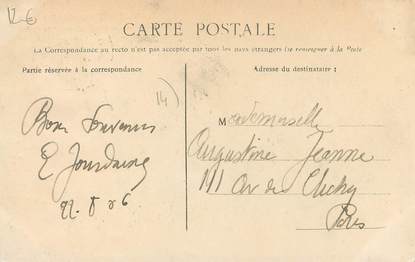 12-6
CARTE POSTALE
La Correspondance au recto n'est pas acceptée par tous les pays étrangers (se renseigner à la Poste
Partie réservée à la correspondance
Adresse du destinataire :
14)
Bon Souvenir
E Jourdain
Mademoiselle
Augustine Jeanne
111 Av de Clichy
Paris